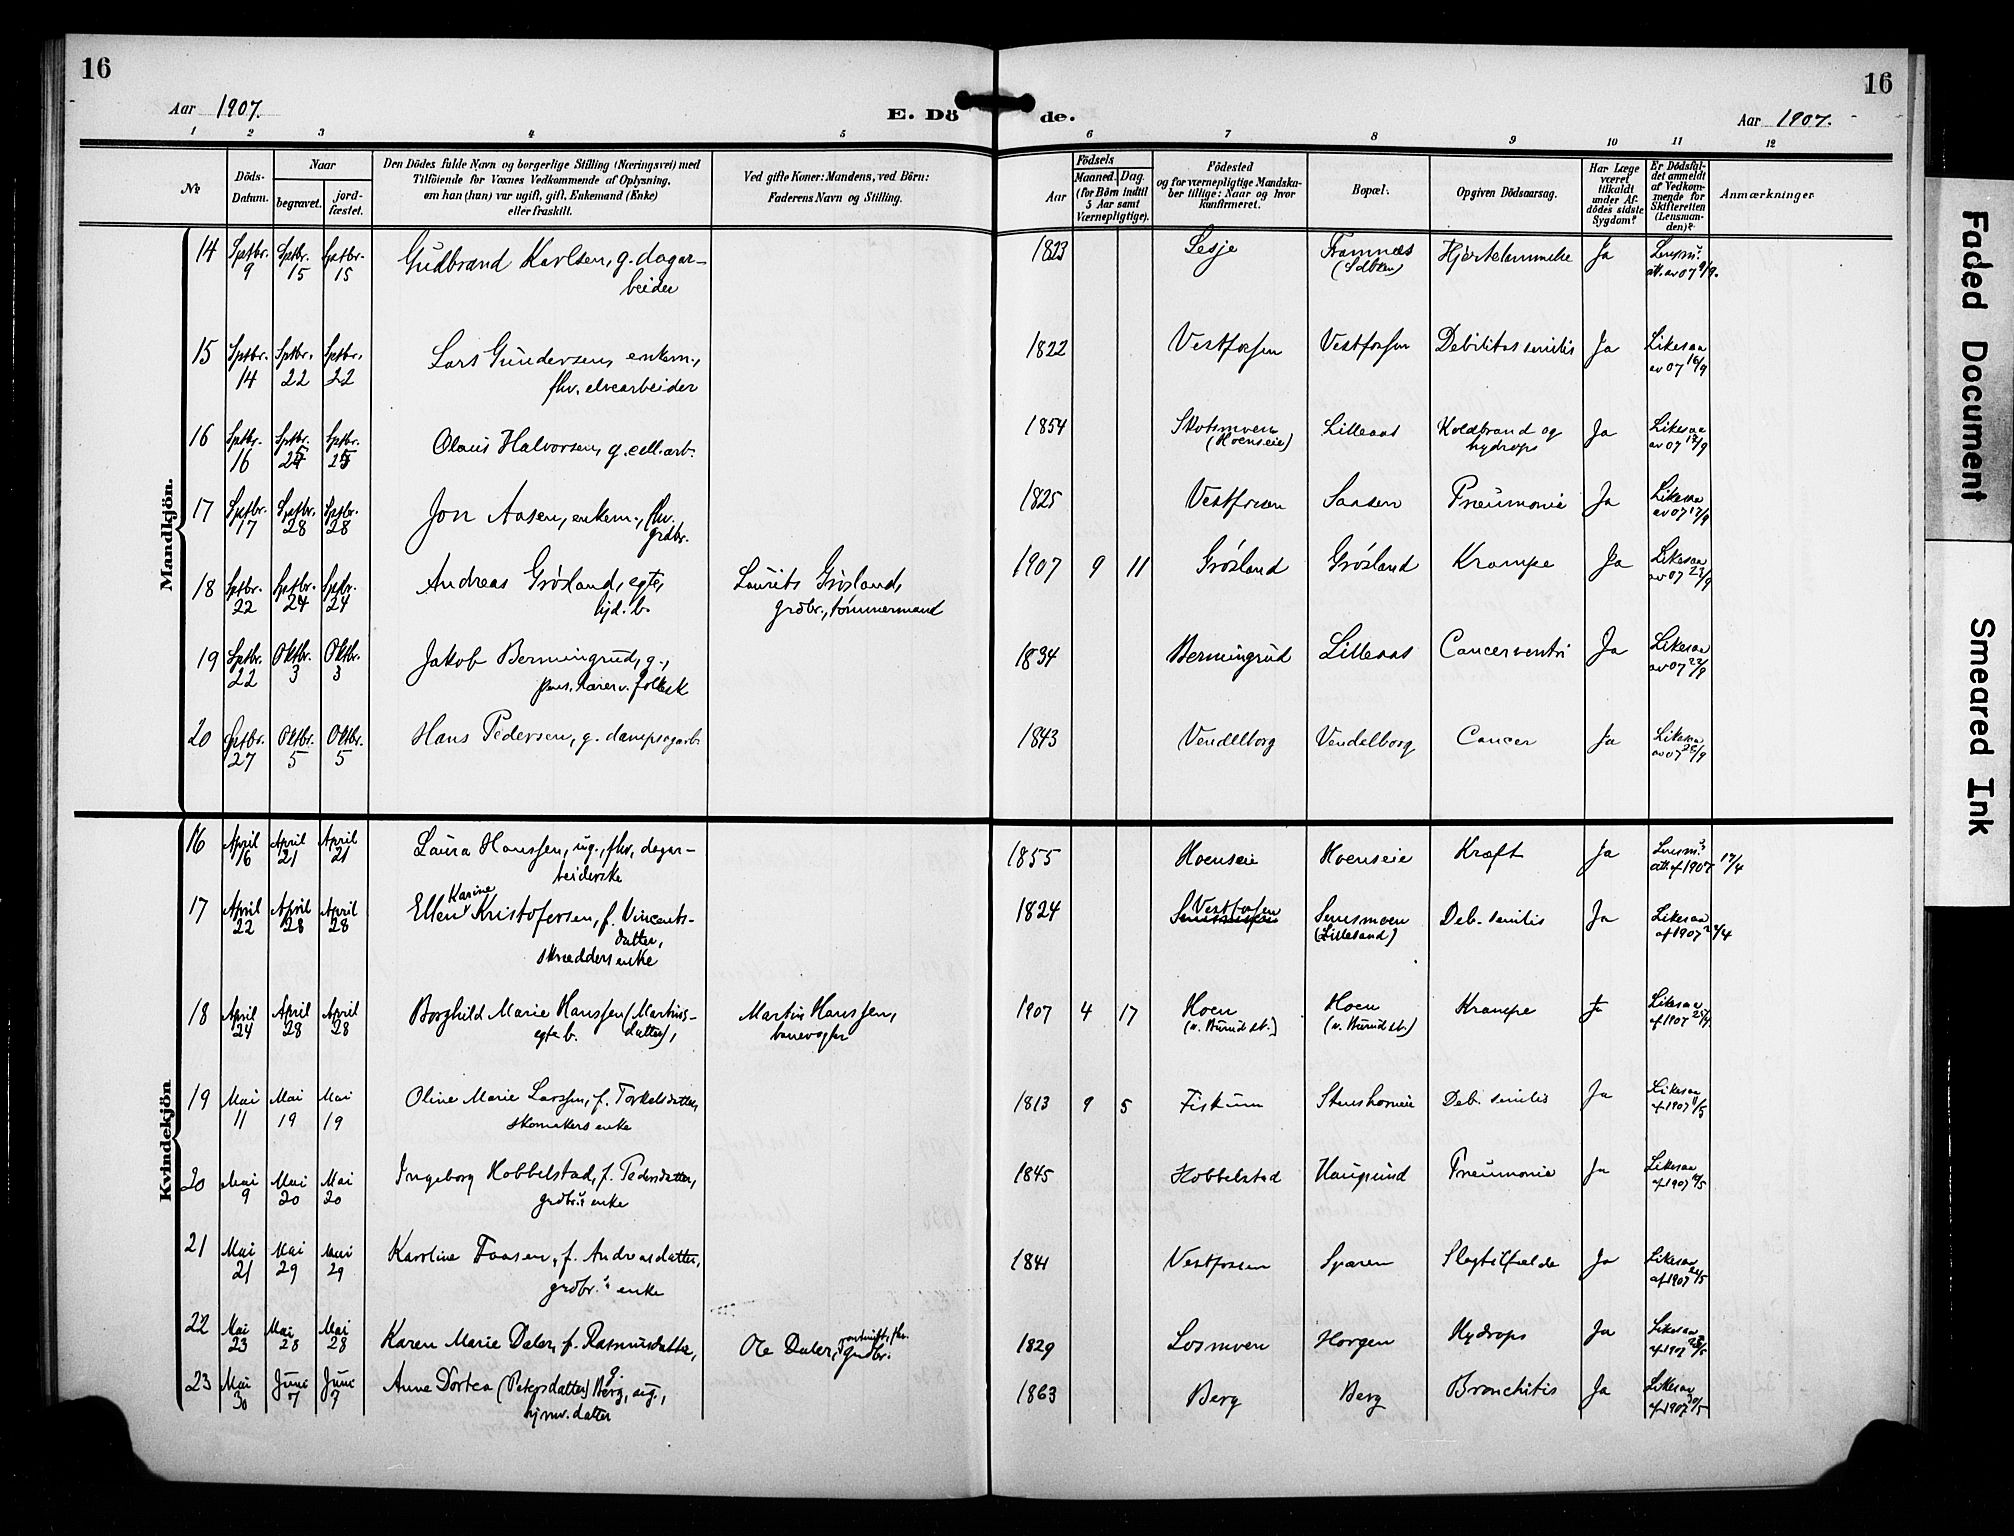 16
16
Aar 1907.
E. Dö
de.
Aar 1907.
1 2 3 4 5 6 7 8 9 10 11 12
No
Döds-
Datum.
Naar
begravet.
jord-
fæstet.
Den Dödes fulde Navn og borgerlige Stilling (Næringsvei) med
Tilföiende for Voxnes Vedkommende af Oplysning,
om han (hun) var ugift, gift, Enkemand (Enke)
eller fraskilt.
Ved gifte Koner: Mandens, ved Börn:
Faderens Navn og Stilling.
Födsels
Aar
Maaned. Dag.
(for Børn indtil
5 Aar samt
Værnepligtige).
Födested
og for værnepligtige Mandska-
ber tillige: Naar og hvor
konfirmeret.
Bopæl.
Opgiven Dödsaarsag.
Har Læge
været
tilkaldt
under Af-
dödes sidste
Sygdom?
Er Dödsfal-
det anmeldt
af Vedkom-
mende for
Skifteretten
(Lensman-
den)?
Anmærkninger
Mandkjön.
14 Septbr. 9 Septbr. 15 Septbr. 15 Gudbrand Karlsen, g. dagar-
beider
1823 Lesje Framnæs Hjertelammelse Ja Lensm.
att. av 07 9/9.
15 Septbr. 14 Septbr. 22 Septbr. 22 Lars Gundersen, enkem.,
fhv. elvearbeider
1822 Vestfossen Vestfossen Debilitas senilis Ja Likesaa
av 07 16/9
16 Septbr. 16 Septbr. 25 Septbr. 25 Olaus Halvorsen, g. cell.arb.
1854 Skotsmoen
(Hoenseie) Lilleaas Koldbrand og
hydrops Ja Likesaa
av 07 /9
17 Septbr. 17 Septbr. 28 Septbr. 28 Jon Aasen, enkem., fhv.
grdbr.
1825 Vestfossen Saasen Pneumonie Ja Likesaa
av 07 17/9
18 Septbr. 22 Septbr. 24 Septbr. 24 Andreas Grøsland, egte,
hjd. b.
Laurits Grøsland,
grdbr., tømmermand
1907 9 11 Grøsland Grøsland Krampe Ja Likesaa
av 07 23/9
19 Septbr. 22 Oktbr. 3 Oktbr. 3 Jakob Bermingrud, g.,
pens. lærer v. folkesk
1834 Bermingrud Lilleaas Cancer ventri Ja Likesaa
av 07 22/9
20 Septbr. 27 Oktbr. 5 Oktbr. 5 Hans Pedersen, g. dampsagarb.
1843 Vendelborg Vendelborg Cancer Ja Likesaa
av 07 28/9
Kvindekjön
16 April 16 April 21 April 21 Laura Hanssen, ug., fhv. dagar-
beiderske
1855 Hoenseie Hoenseie Kræft Ja Lensm.
att. af 1907 17/4
17 April 22 April 28 April 28 Ellen Karine Kristofersen, f. Vincents-
datter,
skrædders enke
1824 Vestfossen Semsmoen
(Lillesand) Deb. senilis Ja Likesaa
af 1907 /4
18 April 24 April 28 April 28 Borghild Marie Hanssen (Martins-
datter),
egte b.
Martin Hanssen,
banevogter
1907 4 17 Hoen
(v. Burud st.) Hoen
(v. Burud st.) Krampe Ja Likesaa
af 1907 25/4
19 Mai 11 Mai 19 Mai 19 Oline Marie Larssen, f. Torkelsdatter,
skomakers enke
1813 9 5 Fiskum Stenshorneie Deb. senilis Ja Likesaa
af 1907 11/5
20 Mai 9 Mai 20 Mai 20 Ingeborg Hobbelstad, f. Pedersdatter,
grdbr.s enke
1845 Hobbelstad Haugsund Pneumonie Ja Likesaa
af 1907 /5
21 Mai 21 Mai 29 Mai 29 Karoline Faasen, f. Andreasdatter,
grdbr.s enke
1841 Vestfossen Sparen Slagtilfælde Ja Likesaa
af 1907 /5
22 Mai 23 Mai 28 Mai 28 Karen Marie Daler, f. Rasmusdatter,
Ole Daler, fhv.
grdbr.
1829 Losmoen Horgen Hydrops Ja Likesaa
af 1907 /5
23 Mai 30 Juni 7 Juni 7 Anne Dortea (Petersdatter) Berg, ug.,
hjmv. datter
1863 Berg Berg Bronchitis Ja Likesaa
af 1907 30/5
Faded Document
Smeared Ink